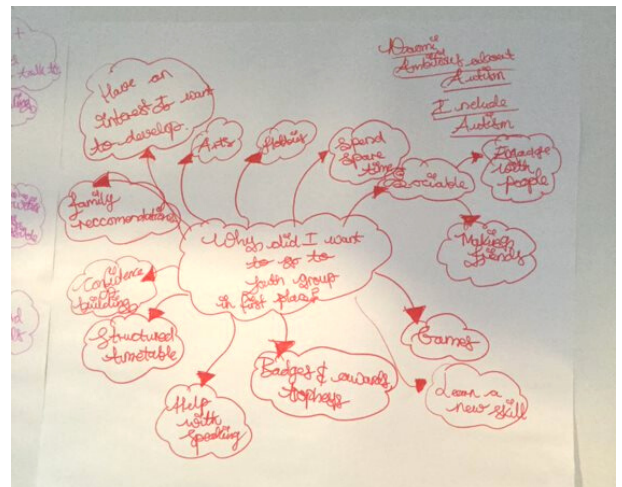 Naomi
Ambitious about
Autism
Include
Autism
Have an
interest I want
to develop.
Arts
Hobbies
Spend
spare
time
Sociable
Engage
with
people
Making
friends
family
reccomendations
Why did I want
to go to
youth group
in first place?
Confidence
building
Structured
timetable
Help
with
speaking
Badges & awards,
tropheys
Games
Learn a
new skill
talk to